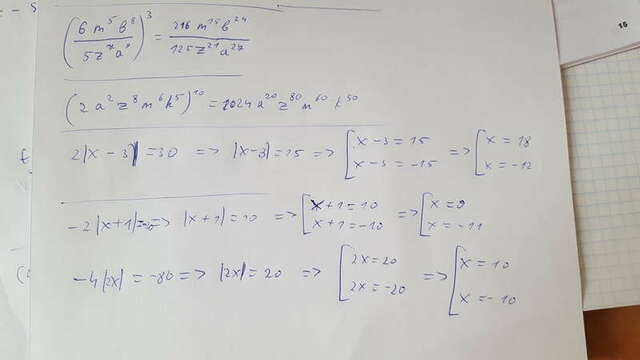 (6m⁵b⁸ / 5z⁷a⁸)³ = 216m¹⁵b²⁴ / 125z²¹a²⁴
(2a²z⁸m b⁵)¹⁰ = 1024a²⁰z⁸⁰m¹⁰b⁵⁰
2|x-3|=30 => |x-3|=15 => [x-3=15 x-3=-15 => [x=18 x=-12
-2|x+1|= => |x+1|=10 => [x+1=10 x+1=-10 => [x=9 x=-11
-4|2x|=-80 => |2x|=20 => [2x=20 2x=-20 => [x=10 x=-10
16